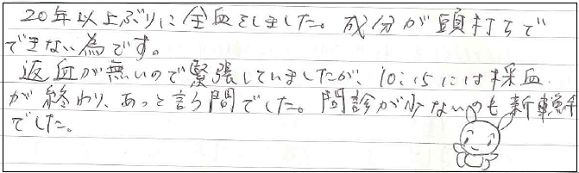 20年以上ぶりに全血をしました。成分が頭打ちで
できない為です。
返血が無いので緊張していましたが、10:15には採血
が終わり、あっと言う間でした。問診が少ないのも新鮮
でした。